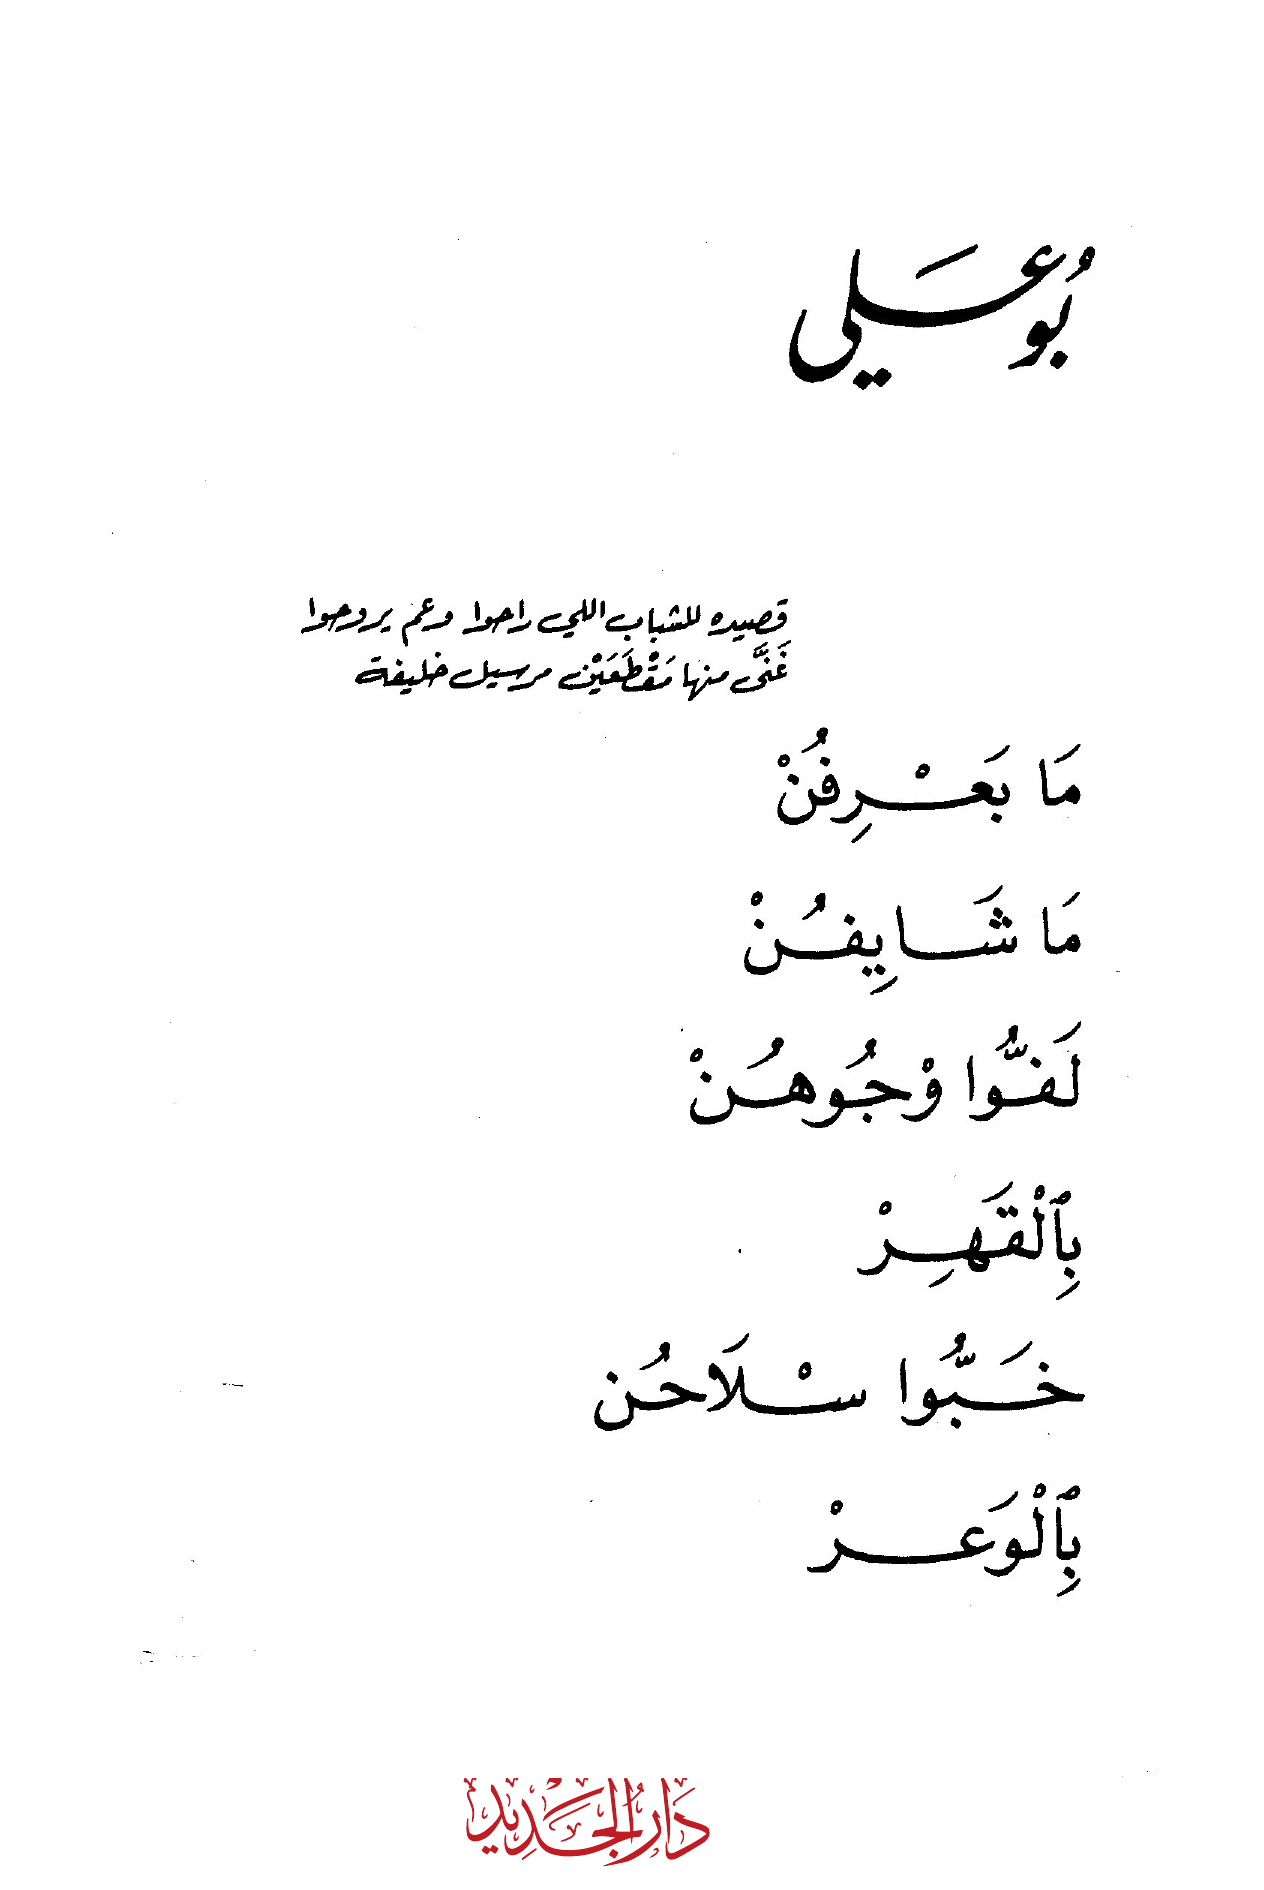 بُو عَلي
قصيده للشباب اللي راحوا وعم يروحوا
غَنَّى منها مَقْطَعَيْن مرسيل خليفة
مَا بَعْرِفُنْ
مَا شَايِفُنْ
لَفُّوا وْجُوهُنْ
بِٱلْقَهِرْ
خَبُّوا سْلَاحُن
بِٱلْوَعرْ
دَارُ الجَدِيد